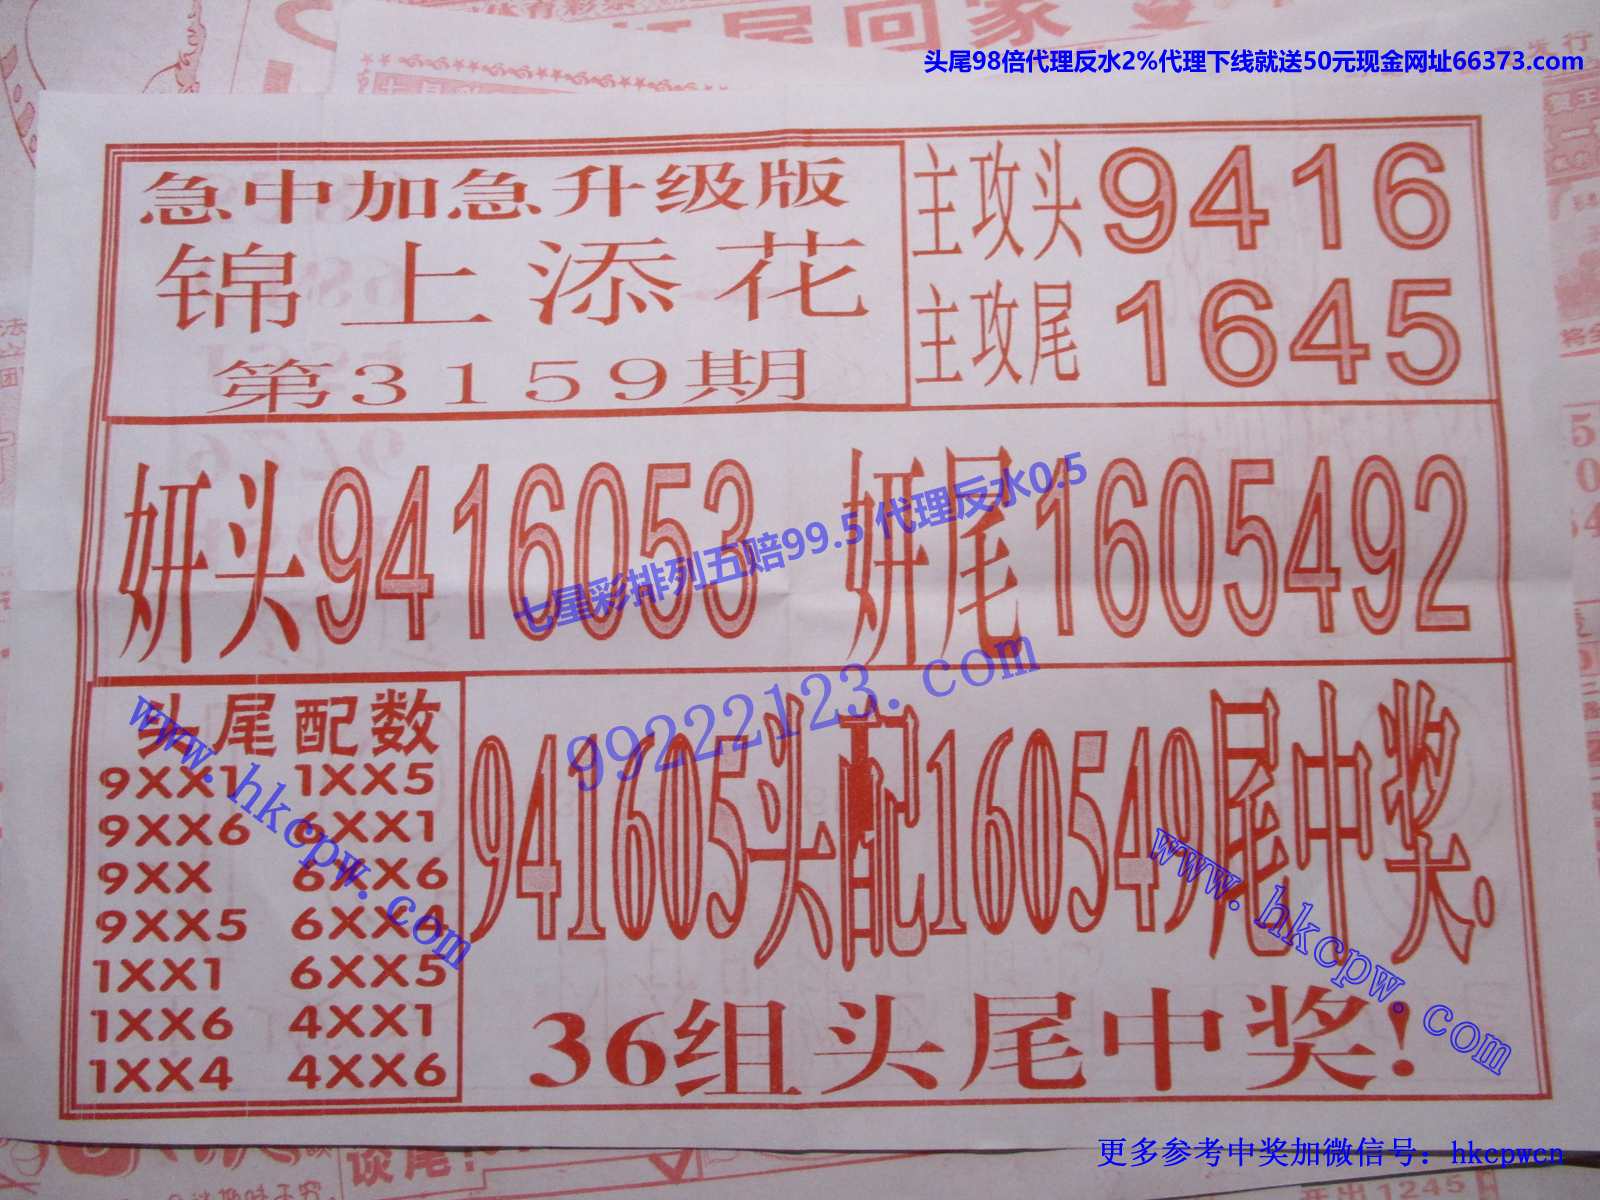 头尾98倍代理反水2%代理下线就送50元现金网址66373.com
急中加急升级版
锦上添花
第3159期
主攻头9416
主攻尾1645
妍头9416053 妍尾1605492
七星彩排列五赔99.5 代理反水0.5
99222123.com
头尾配数
9XX1 1XX5
9XX6 6XX1
9XX 6XX6
9XX5 6XX4
1XX1 6XX5
1XX6 4XX1
1XX4 4XX6
www.hkcpw.com
941605头配160549尾中奖.
www.hkcpw.com
36组头尾中奖!
更多参考中奖加微信号：hkcpwcn